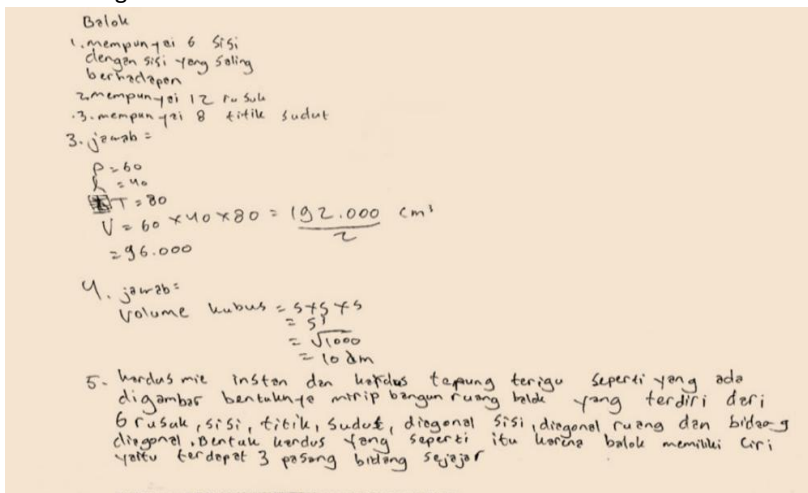 Balok
1. mempunyai 6 sisi
dengan sisi yang saling
berhadapan
2. mempunyai 12 rusuk
3. mempunyai 8 titik sudut
3. jawab =
P = 60
l = 40
T = 80
V = 60 x 40 x 80 = 192.000 cm³
2
= 96.000
4. jawab =
Volume kubus = s x s x s
= s³
= √1000
= 10 dm
5. kardus mie instan dan kardus tepung terigu seperti yang ada
digambar bentuknya mirip bangun ruang balok yang terdiri dari
6 rusuk, sisi, titik, sudut, diagonal sisi, diagonal ruang dan bidang
diagonal, Bentuk kardus yang seperti itu karena balok memiliki ciri
yaitu terdapat 3 pasang bidang sejajar